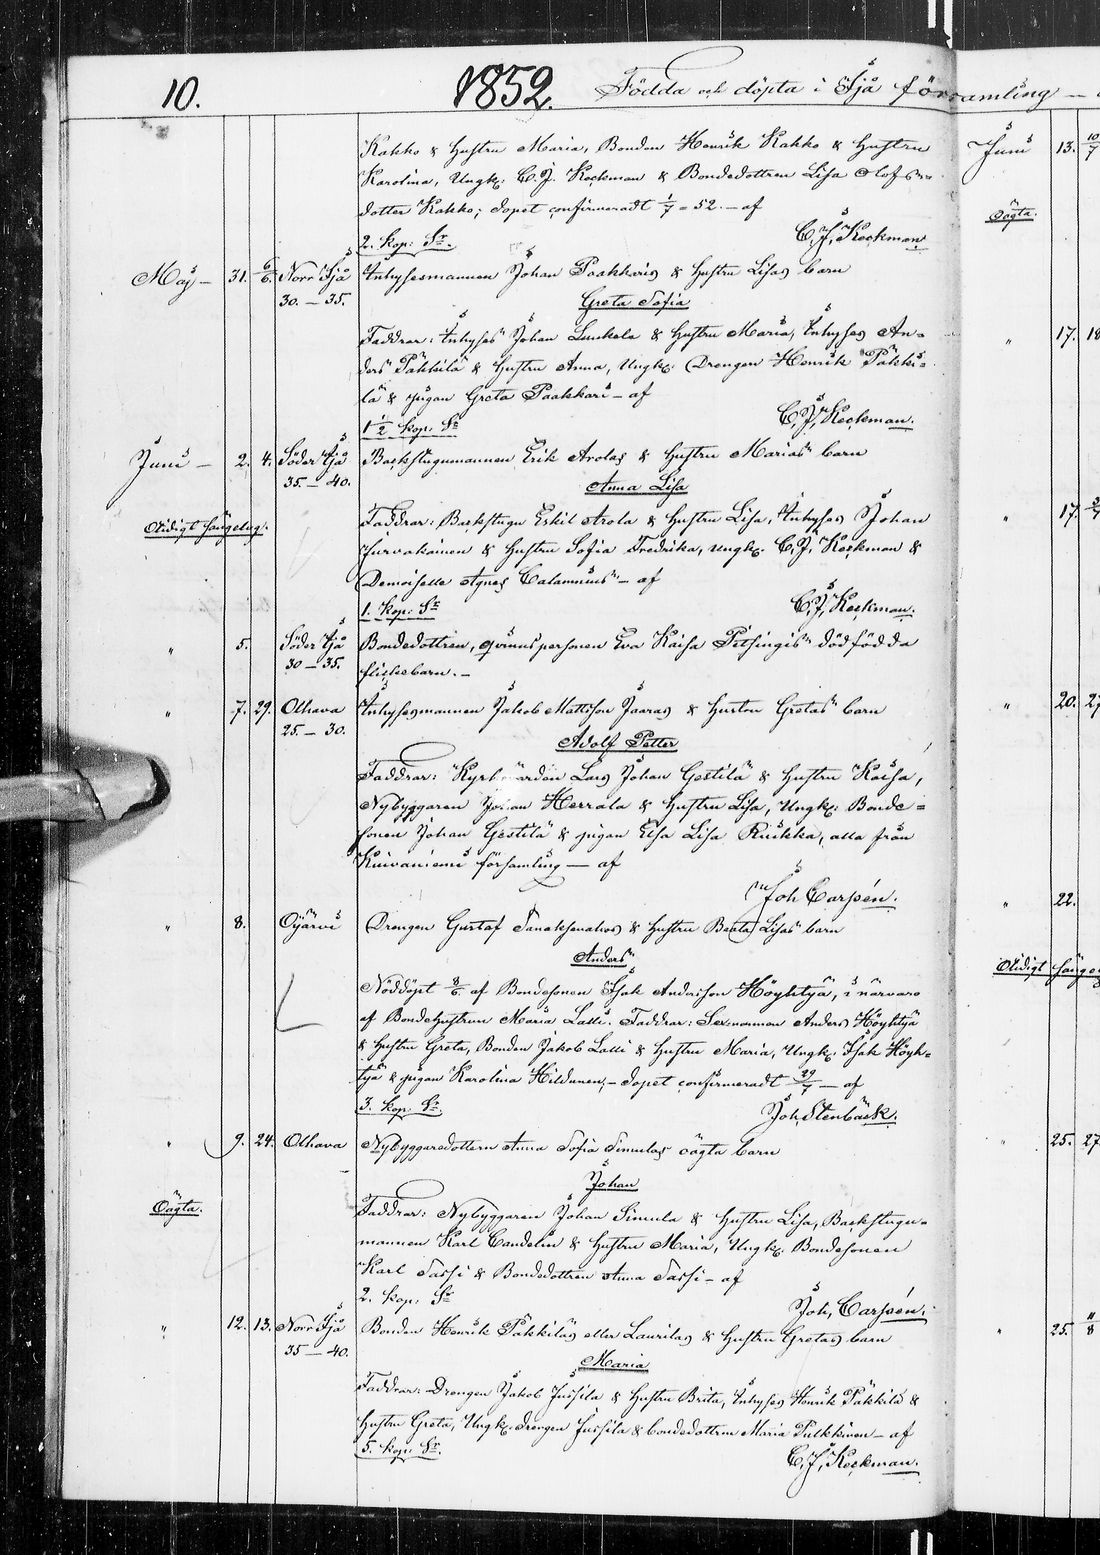 10. 1852. Födda och döpta i Ijå församling —
Kakko & hustru Maria, Bonden Henrik Kakko & hustru
Karolina, Ungk: C. J. Keckman & Bondedottren Lisa Olofs-
dotter Kakko; dopet confirmeradt 1/7 = 52. — af
2. kop: Sr. C. J. Keckman.
Maj — 31. 6/6. Norr Ijå Inhysesmannen Johan Paakkaris & hustru Lisas barn
30. — 35. Greta Sofia
Faddrar: Inhyses Johan Luukela & hustru Maria, Inhyses An-
ders Päkkilä & hustru Anna, Ungk: Drengen Henrik Päkki-
lä & pigan Greta Paakkari — af
1 1/2 kop: Sr C. J. Keckman.
Juni — 2. 4. Söder Ijå Backstugumannen Erik Arolas & hustru Marias barn
35. — 40. Anna Lisa
Otidigt sängelag. Faddrar: Backstugu Eskil Arola & hustru Lisa, Inhyses Johan
Jurvakainen & hustru Sofia Fredrika, Ungk: C. J. Keckman &
Demoiselle Agnes Calamnius — af
1. kop: Sr C. J. Keckman.
" 5. Söder Ijå Bondedottren, qvinnspersonen Eva Kaisa Pitsingis dödfödda
30 — 35. flickebarn. —
" 7. 29. Olhava Inhysesmannen Jakob Mattsson Jaaras & hustru Gretas barn
25. — 30. Adolf Petter
Faddrar: Lars Johan Gestilä & hustru Kaisa,
Nybyggaren Johan Herrala & hustru Lisa, Ungk: Bonde-
sonen Johan Gestilä & pigan Elsa Lisa Ruikka, alla från
Kuivaniemi församling — af
Joh Carpén.
" 8. Oijärvi Drengen Gustaf & hustru Beata Lisas barn
Anders
Nöddöpt 8/6. af Bondesonen Isak Andersson Höyhtyä, i närvaro
af Bondehustrun Maria Lalli. Faddrar: Sexmannen Anders Höyhtyä
& hustru Greta, Bonden Jakob Lalli & hustru Maria, Ungk. Isak Höyh-
tyä & pigan Karolina Hildunen, — dopet confirmeradt 29/7 — af
3. kop: Sr. Joh. Stenbäck.
" 9. 24. Olhava Nybyggaredottern Anna Sofia Simulas oägta barn
Johan
Oägta. Faddrar: Nybyggaren Johan Simula & hustru Lisa, Backstugu-
mannen Karl Candelin & hustru Maria, Ungk. Bondesonen
Karl Tassi & Bondedottren Anna Tassi — af
2. kop: Sr Joh. Carpén.
" 12. 13. Norr Ijå Bonden Henrik Päkkiläs eller Laurilas & hustru Gretas barn
35 — 40. Maria
Faddrar: Drengen Jakob Jussila & hustru Brita, Inhyses Henrik Päkkilä &
hustru Greta, Ungk. drengen Jussila & bondedottren Maria Pulkkinen — af
5. kop: Sr. C. J. Keckman.
Juni 13. 10/7
Oägta.
" 17. 18
" 17.
" 20. 27
" 22.
Otidigt sängel
" 25. 27
" 25. 11/8